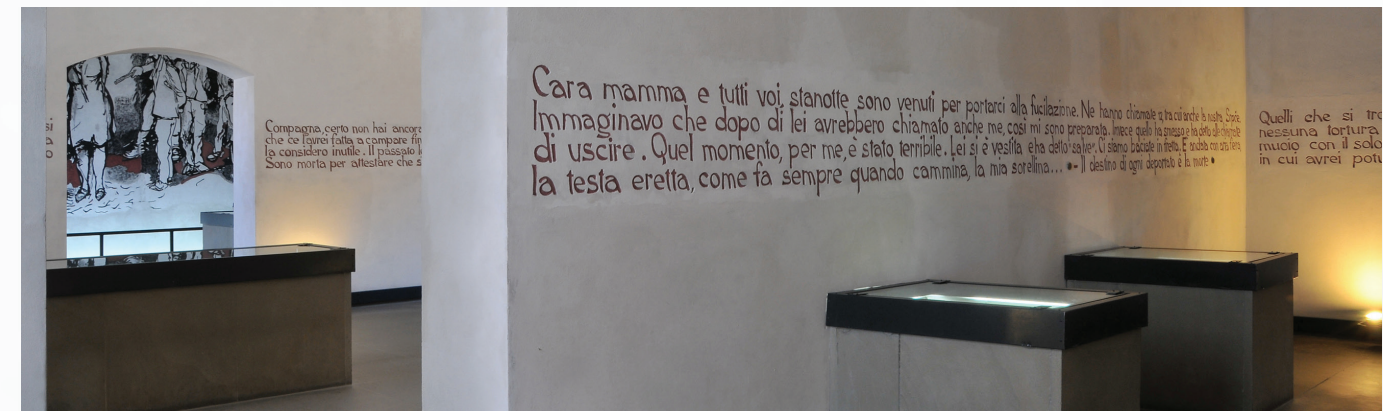 Compagna, certo non hai ancora
che ce l'avrei fatta a campare fin
la considero inutile. Il passato
Sono morta per attestare che s
Cara mamma e tutti voi, stanotte sono venuti per portarci alla fucilazione. Ne hanno chiamate 9 tra cui anche la nostra
Immaginavo che dopo di lei avrebbero chiamato anche me, così mi sono preparata. Invece quello ha smesso e ha detto alle chiamate
di uscire. Quel momento, per me, è stato terribile. Lei si è vestita e ha detto: salve. Ci siamo baciate in fretta. È andata con
la testa eretta, come fa sempre quando cammina, la mia sorellina... •- Il destino di ogni deportato è la morte •
Quelli che si tro
nessuna tortura
mucio con il solo
in cui avrei potu